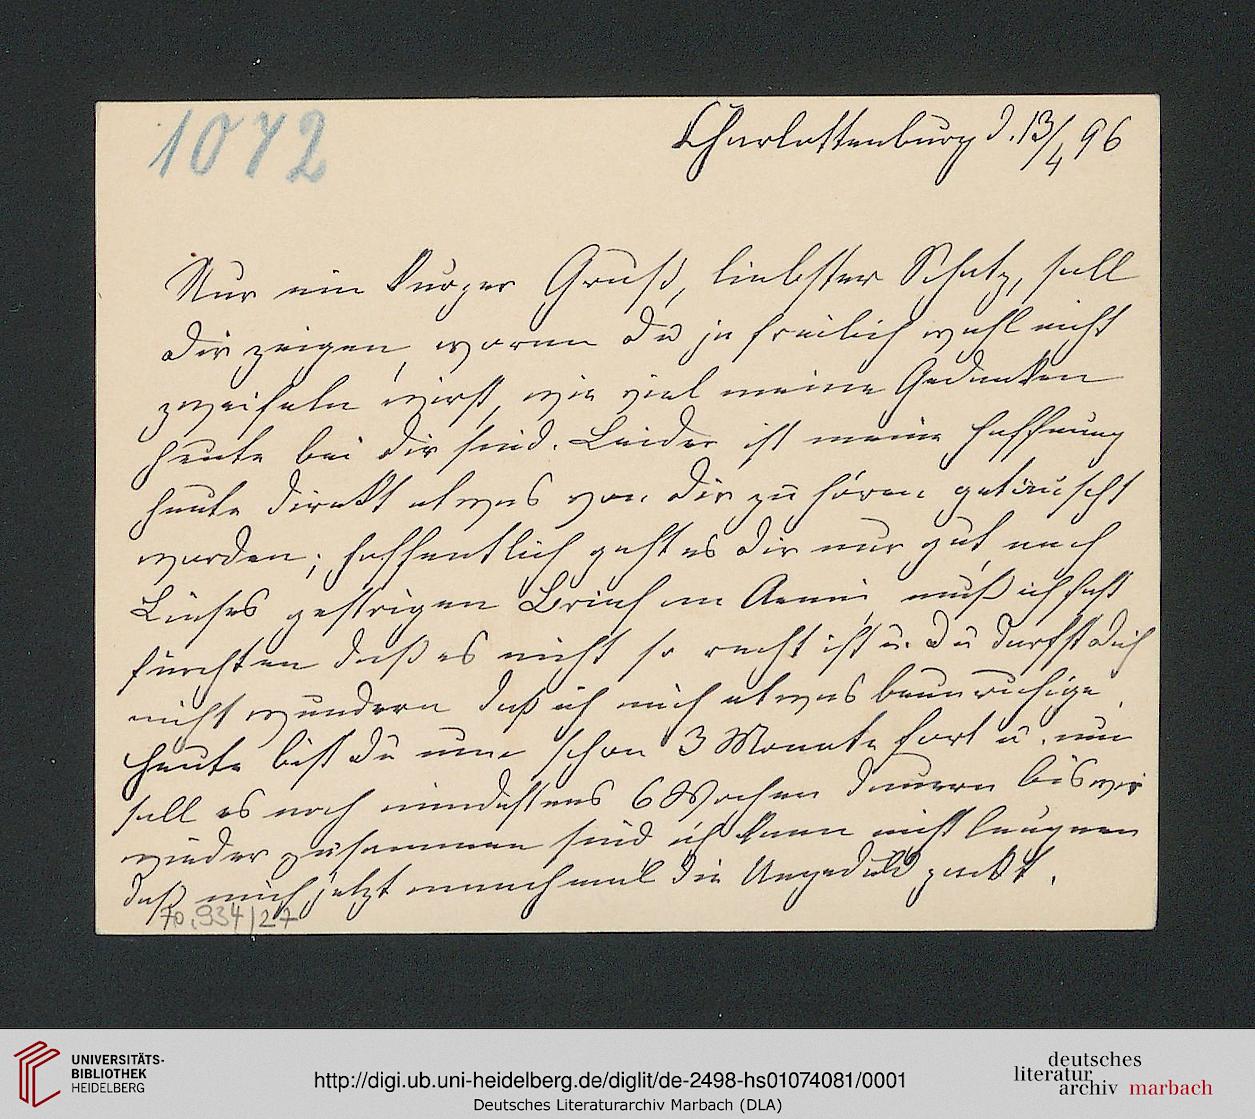 1072
Charlottenburg d. 13/4 96
Nur ein kurzer Gruß, liebster Schatz, soll
Dir zeigen, woran Du ja freilich wohl nicht
zweifeln wirst, wie viel meine Gedanken
heute bei Dir sind. Leider ist meine Hoffnung
heute direkt etwas von Dir zu hören getäuscht
worden; hoffentlich geht es Dir nur gut, nach
gestrigem Brief an Aenni, muß ich fast
fürchten daß es nicht so recht ist u. Du darfst Dich
nicht wundern daß ich mich etwas beunruhige
Heute bist Du nun schon 3 Monate fort u. nun
soll es noch mindestens 6 Wochen dauern bis wir
wieder zusammen sind ich kann nicht leugnen
daß mich jetzt manchmal die Ungeduld packt.
70.934/27
UNIVERSITÄTS-
BIBLIOTHEK
HEIDELBERG
http://digi.ub.uni-heidelberg.de/diglit/de-2498-hs01074081/0001
Deutsches Literaturarchiv Marbach (DLA)
deutsches
literatur
archiv marbach